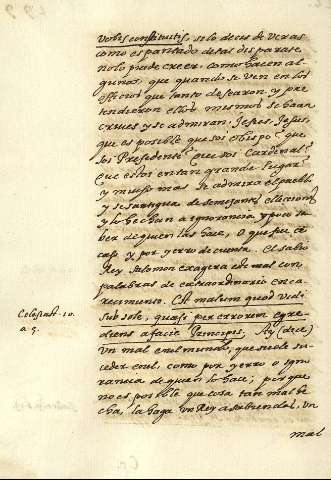 verbis constitutis, si lo deçis de veras
como espantado de tal disparase,
no lo puede creer, como haçen al
gunos, que quando se ven en los
que tanto desearon, y pre
tendieron ellos mesmos se haçen
cruçes y se admiran, Jesus, Jesus,
que es posible que soi obispo? que
soi Presidente? que soi Cardenal?
que estoi en tan grande lugar?
y mui mas se admira el pueblo
y se santigua de semejante election,
y lo hechan a ignorancia y poco sa
ber de quien las haçe, o que fue a
caso y por yerro de cuenta. El sabio
Rey Salomon exagera esto mas con
palabras de extraordinario enca
reçimiento. Est malum quod vidi
sub sole, quasi per errorem egre
diens a facie Principis, Ay (dice)
Un mal en el mundo, que suele su
ceder en el, como por yerro o igno
rancia de quien lo haçe; porque
no es posible que cosa tan mal he
cha, la haga un Rey a sabiendas, un
mal
Eclesiast. 10.
a 5.